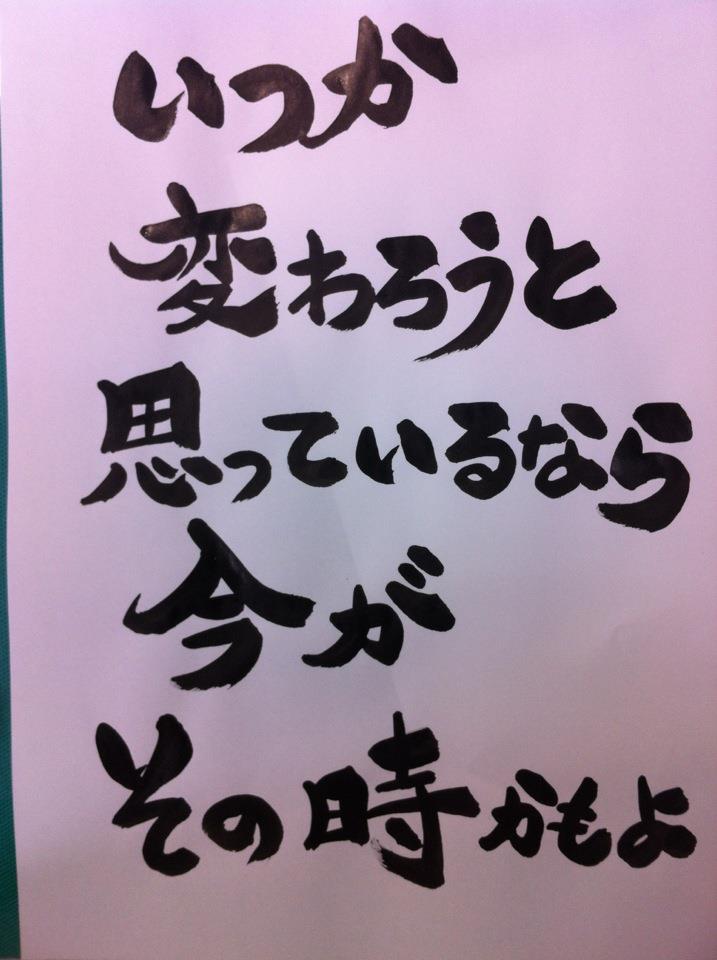 いつか
変わろうと
思っているなら
今が
その時かもよ